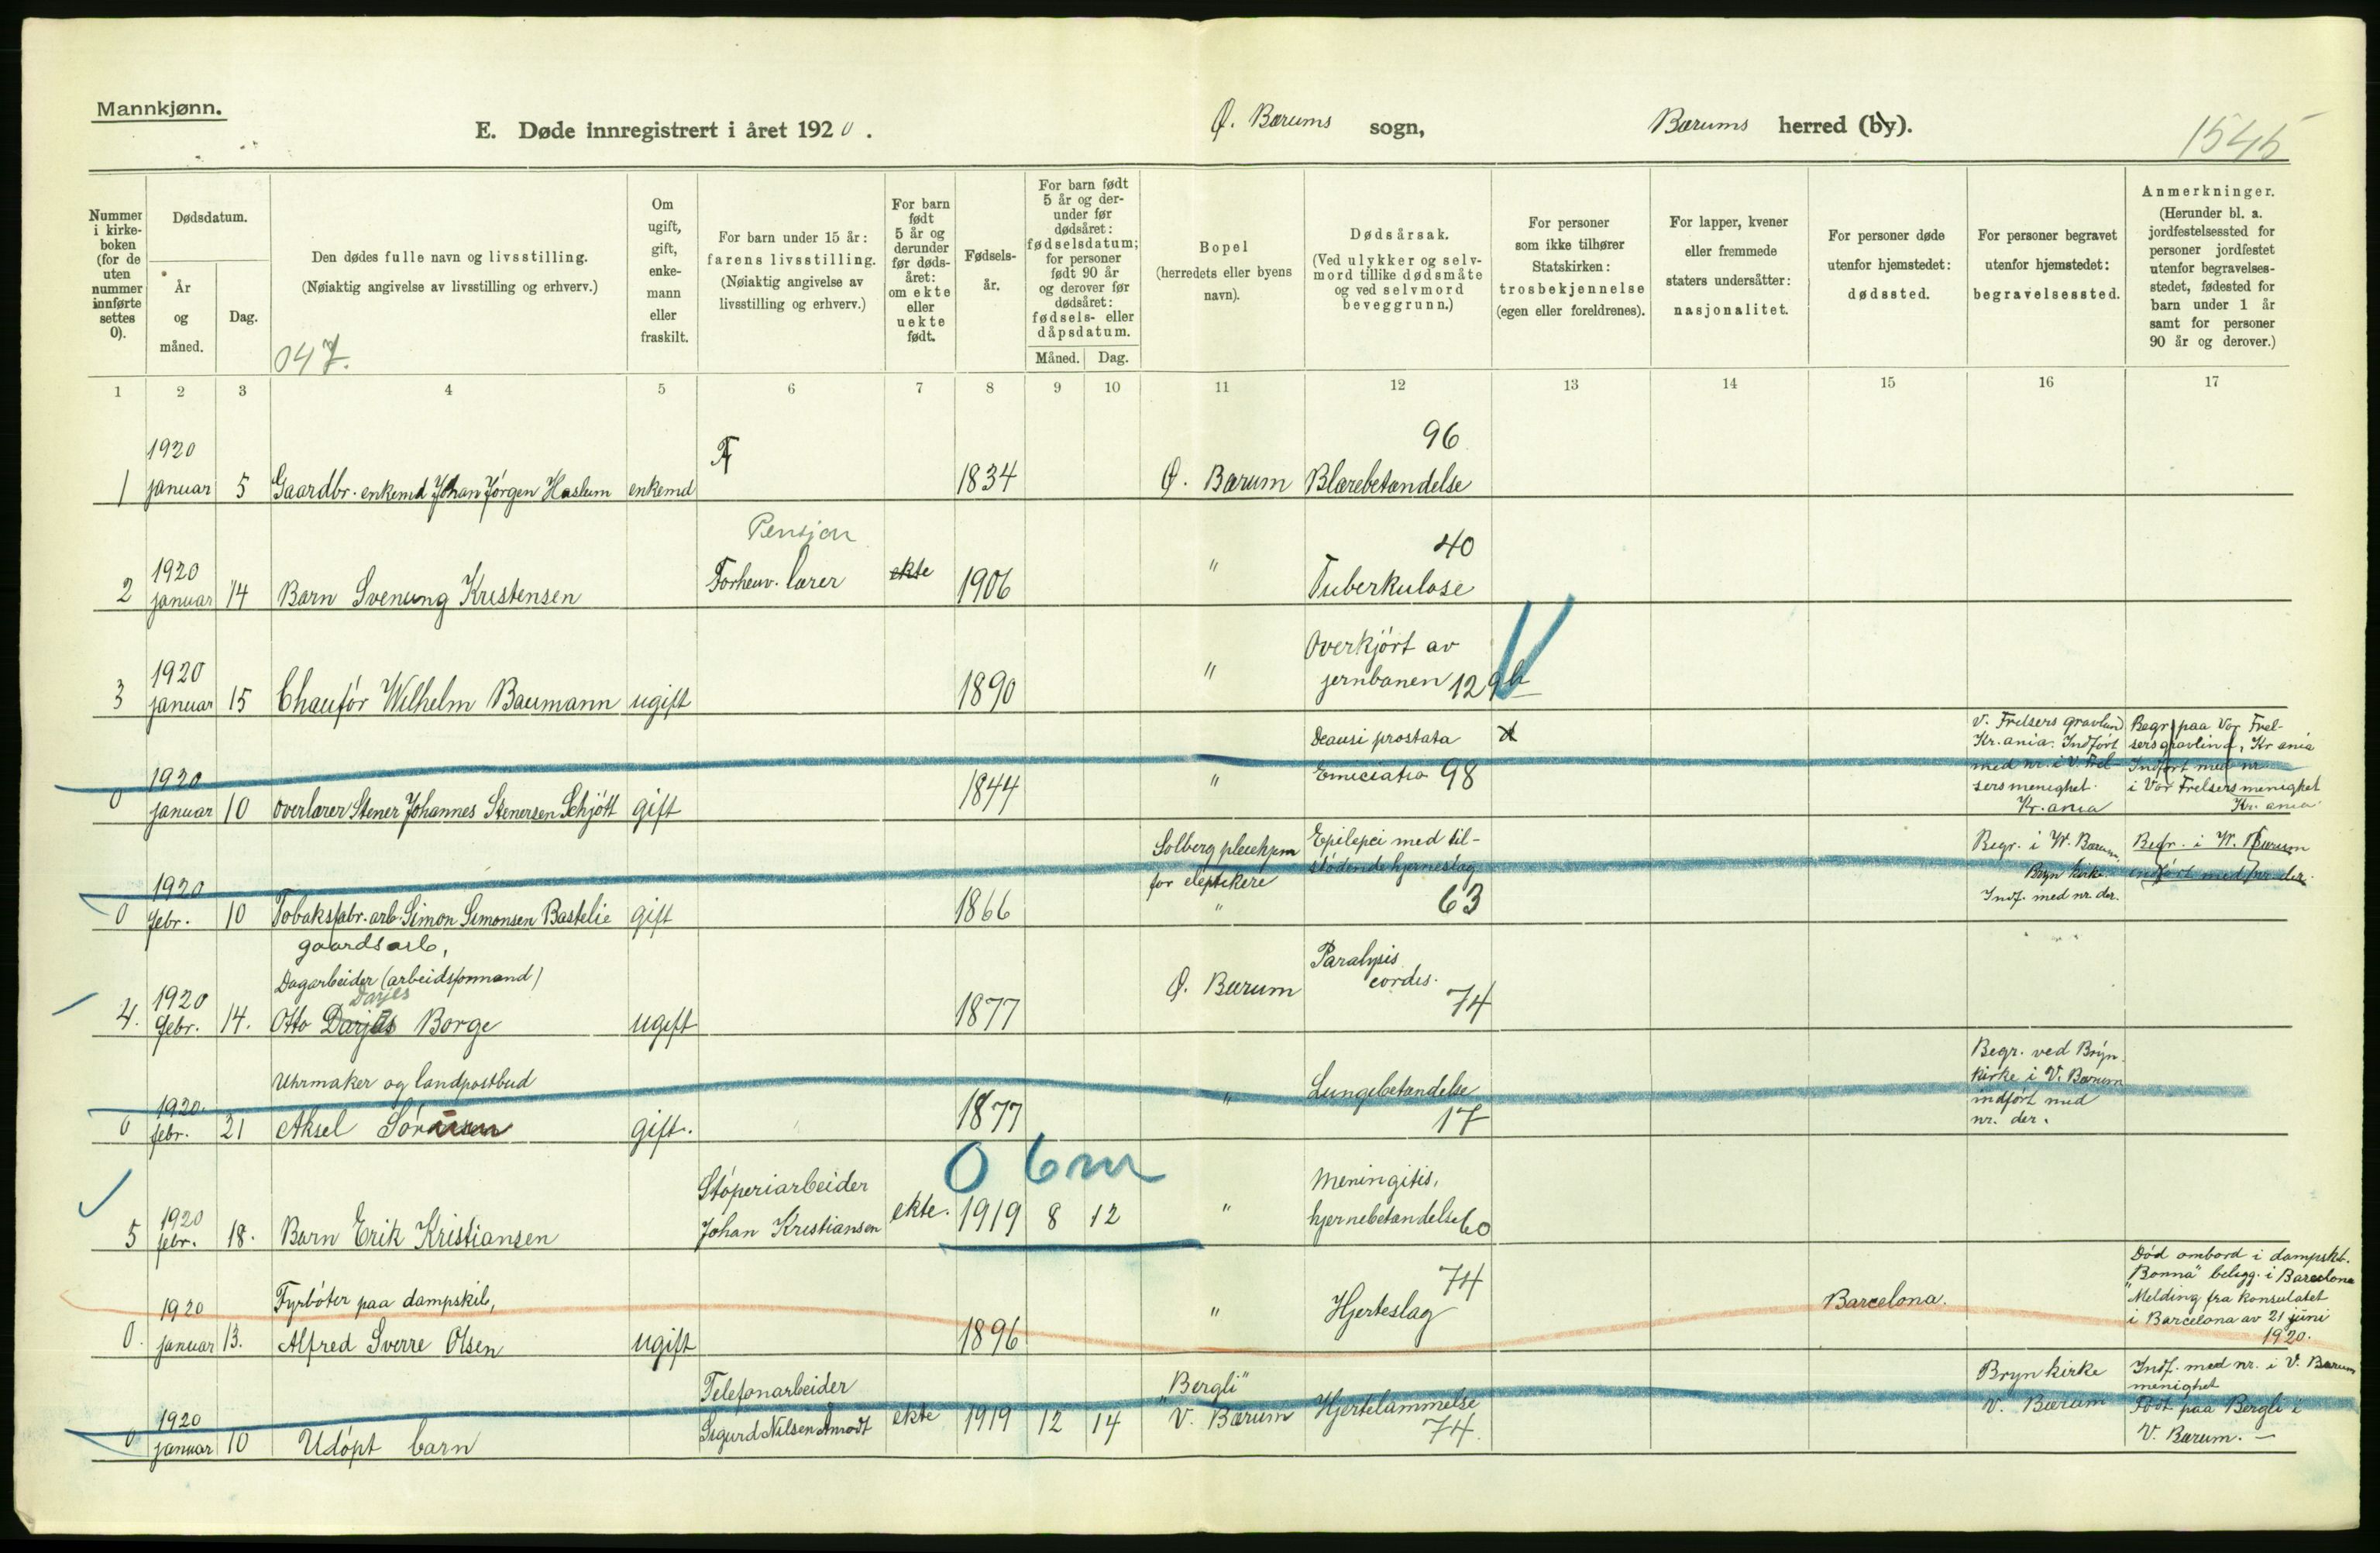 Mannkjønn.
E. Døde innregistrert i året 1920.
Ø. Bærums sogn,
Bærums herred (by).
1545
Nummer i kirke-
boken
(for de
uten
nummer
innførte
settes
0).
Dødsdatum.
År
og
måned.
Dag.
Den dødes fulle navn og livsstilling.
(Nøiaktig angivelse av livsstilling og erhverv.)
047.
Om
ugift,
gift,
enke-
mann
eller
fraskilt.
For barn under 15 år:
farens livsstilling.
(Nøiaktig angivelse av
livsstilling og erhverv.)
For barn
født
5 år og
derunder
før døds-
året:
om ekte
eller
uekte
født.
Fødsels-
år.
For barn født
5 år og der-
under før
dødsåret:
fødselsdatum;
for personer
født 90 år
og derover før
dødsåret:
fødsels- eller
dåpsdatum.
Måned. Dag.
Bopel
(herredets eller byens
navn).
Dødsårsak.
(Ved ulykker og selv-
mord tillike dødsmåte
og ved selvmord
beveggrunn.)
For personer
som ikke tilhører
Statskirken:
trosbekjennelse
(egen eller foreldrenes).
For lapper, kvener
eller fremmede
staters undersåtter:
nasjonalitet.
For personer døde
utenfor hjemstedet:
dødssted.
For personer begravet
utenfor hjemstedet:
begravelsessted.
Anmerkninger.
(Herunder bl. a.
jordfestelsessted for
personer jordfestet
utenfor begravelses-
stedet, fødested for
barn under 1 år
samt for personer
90 år og derover.)
1 2 3 4 5 6 7 8 9 10 11 12 13 14 15 16 17
1920
F
96
1 januar 5 Gaardbr. enkemd Johan Jørgen Haslum enkemd 1834 Ø. Bærum Blærebetændelse
Pension
40
1920
2 januar 14 Barn Svenung Kristensen Forhenv. lærer ekte 1906 " Tuberkulose
Overkjørt av
1920
3 januar 15 Chauför Wilhelm Baumann ugift 1890 " jernbanen 129b
prostata
1920
0 januar 10 overlærer Stener Johannes Stenersen Schjött gift 1844 " 98
V. Frelsers gravlund
Kr.ania. Indført
med nr. i V. Frel-
sers menighet.
Kr.ania
Begr. paa Vor Frel-
sers gravlund, Kr ania
Indført med nr
i Vor Frelsers menighet
Kr. ania
Solberg pleiehjem
for
"
Epilepci med til-
stødende hjerneslag
63
1920
0 febr. 10 Tobaksfabr. arb. Simon Simonsen Bastelie gift 1866
Begr. i W. Bærum,
Bryn kirke
Indf. med nr. der.
Begr. i W. Bærum
indført med nr. der.
gaardsarb,
Dagarbeider (arbeidsformand)
Darjes
1920
4. febr. 14. Otto Darjes Borge ugift 1877 Ø. Bærum
Paralysis
cordis.
74
Uhrmaker og landpostbud
1920.
0 febr. 21 Aksel gift. 1877 "
Lungebetændelse
17
Begr. ved Bryn
kirke i V. Bærum
indført med
nr. der.
0 6m
1920
5 febr. 18. Barn Erik Kristiansen
Støperiarbeider
Johan Kristiansen
ekte. 1919 8 12 "
Meningitis,
hjernebetændelse 60
Fyrbøter paa dampskib,
1920
0. januar 13. Alfred Sverre Olsen ugift 1896 "
74
Hjerteslag
Barcelona.
Død ombord i dampskb.
"Bonna" belegg. i Barcelona
Melding fra konsulatet
i Barcelona av 21 juni
1920.
1920
0 januar 10 Udøpt barn
Telefonarbeider
Sigurd Nilsen Amodt
ekte 1919 12 14
"Bergli"
V. Bærum
Hjertelammelse
74.
Bryn kirke
V. Bærum
Indf. med nr. i V. Bærum
menighet
Født paa Bergli i
V. Bærum. —